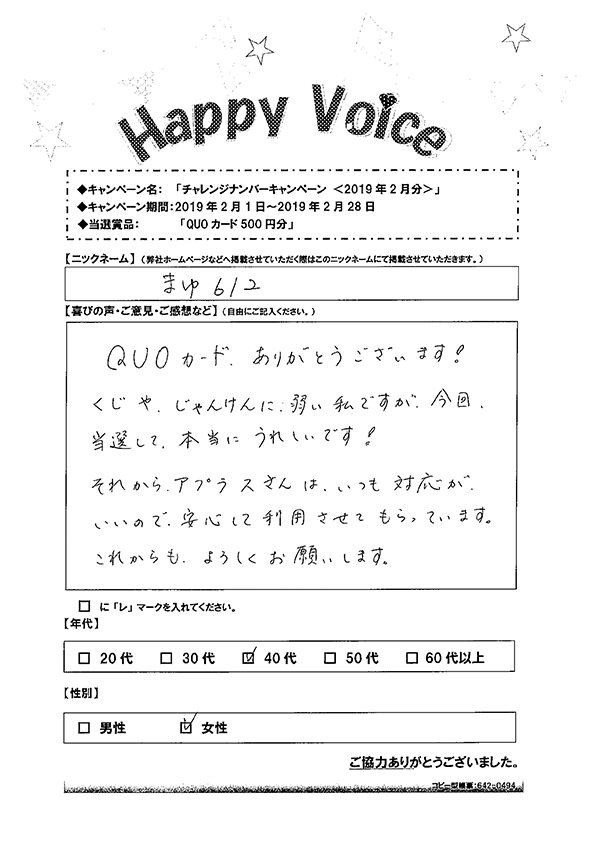 Happy Voice
◆キャンペーン名: 「チャレンジナンバーキャンペーン <2019年2月分>」
◆キャンペーン期間:2019年2月1日~2019年2月28日
◆当選賞品: 「QUOカード500円分」
【ニックネーム】(弊社ホームページなどへ掲載させていただく際はこのニックネームにて掲載させていただきます。)
まゆ612
【喜びの声・ご意見・ご感想など】(自由にご記入ください。)
QUOカード、ありがとうございます!
くじや、じゃんけんに、弱い私ですが、今回、
当選して、本当にうれしいです!
それから、アプラスさんは、いつも対応が、
いいので、安心して利用させてもらっています。
これからも、ようしくお願いします。
□ に「レ」マークを入れてください。
【年代】
□ 20代 □ 30代 ☑ 40代 □ 50代 □ 60代以上
【性別】
□ 男性 ☑ 女性
ご協力ありがとうございました。
コピー型帳票:642-0494